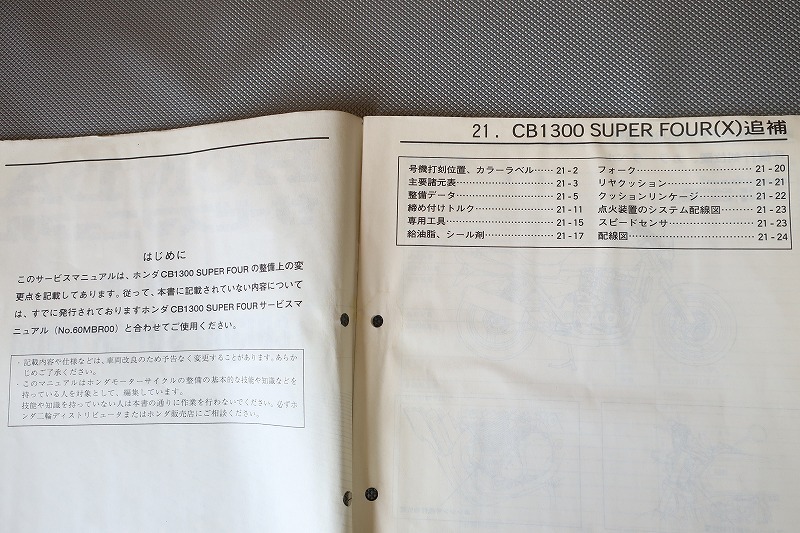 はじめに
このサービスマニュアルは、ホンダCB1300 SUPER FOUR の整備上の変
更点を記載してあります。従って、本書に記載されていない内容について
は、すでに発行されておりますホンダCB1300 SUPER FOURサービスマ
ニュアル（No.60MBR00）と合わせてご使用ください。
・記載内容や仕様などは、車両改良のため予告なく変更することがあります。あらか
じめご了承ください。
・このマニュアルはホンダモーターサイクルの整備の基本的な技能や知識などを
持っている人を対象として、編集しています。
技能や知識を持っていない人は本書の通りに作業を行わないでください。必ずホ
ンダ二輪ディストリビュータまたはホンダ販売店にご相談ください。
21. CB1300 SUPER FOUR(X)追補
号機打刻位置、カラーラベル…… 21-2
主要諸元表…………………… 21-3
整備データ…………………… 21-5
締め付けトルク……………… 21-11
専用工具……………………… 21-15
給油脂、シール剤…………… 21-17
フォーク……………………… 21-20
リヤクッション……………… 21-21
クッションリンケージ……… 21-22
点火装置のシステム配線図…… 21-23
スピードセンサ……………… 21-23
配線図………………………… 21-24